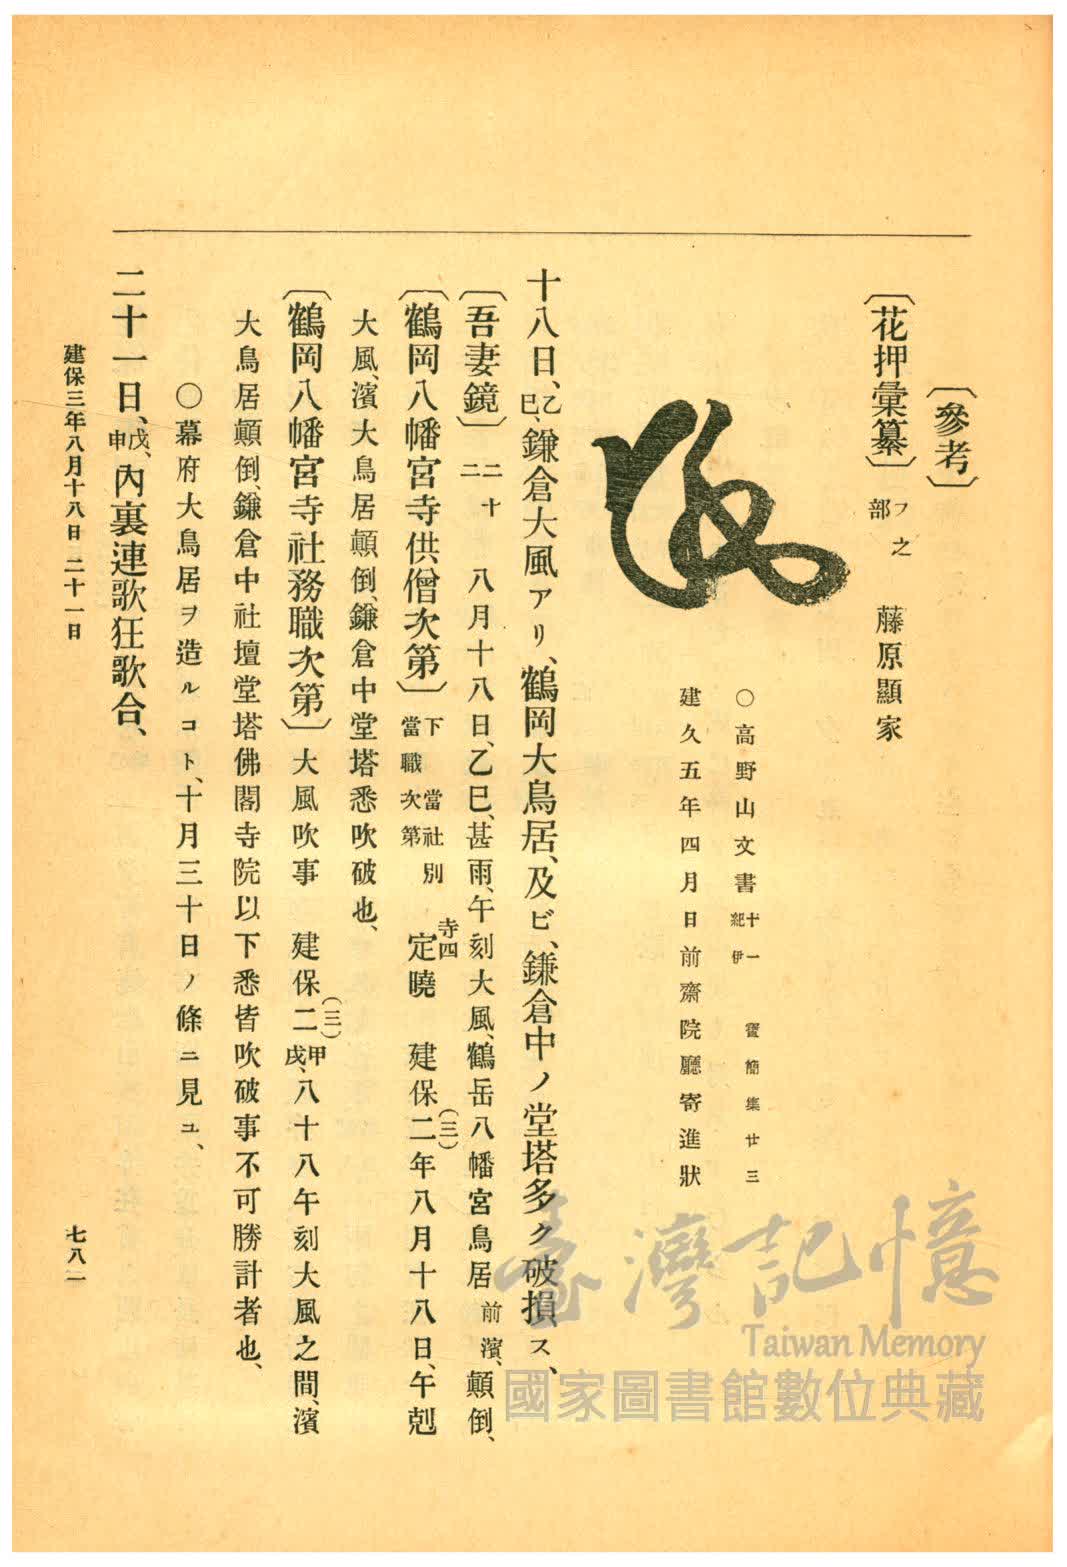 〔參考〕
〔花押彙纂〕フ之部 藤原顯家
○高野山文書十一紀伊 寳簡集廿三
建久五年四月日前齋院廳寄進狀
十八日、乙巳、鎌倉大風アリ、鶴岡大鳥居、及ビ、鎌倉中ノ堂塔多ク破損ス、
〔吾妻鏡〕二十二 八月十八日、乙巳、甚雨、午刻大風、鶴岳八幡宮鳥居前濱、顚倒、
〔鶴岡八幡宮寺供僧次第〕下當社別當職次第 寺四定曉 建保二(三)年八月十八日、午剋
大風、濱大鳥居顚倒、鎌倉中堂塔悉吹破也、
〔鶴岡八幡宮寺社務職次第〕大風吹事 建保二(三)甲戌、八十八午刻大風之間、濱
大鳥居顚倒、鎌倉中社壇堂塔佛閣寺院以下悉皆吹破事不可勝計者也、
○幕府大鳥居ヲ造ルコト、十月三十日ノ條ニ見ユ、
二十一日、戊申、內裏連歌狂歌合、
建保三年八月十八日 二十一日
七八一
臺灣記憶
Taiwan Memory
國家圖書館數位典藏